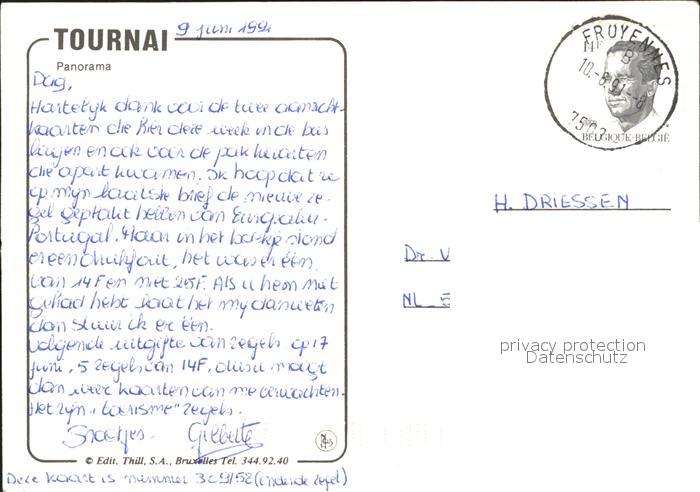 9 juni 1991
TOURNAI
Panorama
Dag,
Hartelijk dank voor de twee aanzicht-
kaarten die hier deze week in de bus
lagen en ook voor de pak kaarten
die apart kwamen. Ik hoop dat ze
op mijn laatste brief de nieuwe ze-
gel geplakt hebben van Europalia-
Portugal. Maar in het boekje stond
er een drukfout, het was er één
van 14F en niet 25F. Als u hem niet
gehad hebt laat het mij dan weten
dan stuur ik er één.
Volgende uitgifte van zegels op 17
juni, 5 zegels van 14F, dus u moogt
dan weer kaarten van me verwachten.
Het zijn "toerisme" zegels.
Groetjes. Gilberte
© Edit. Thill, S.A., Bruxelles Tel. 344.92.40
Deze kaart is nummer 309/52 (zonder zegel)
14F
FROYENNES
B
7503
BELGIQUE-BELGIË
H. DRIESSEN
Dr. V
NL
privacy protection
Datenschutz